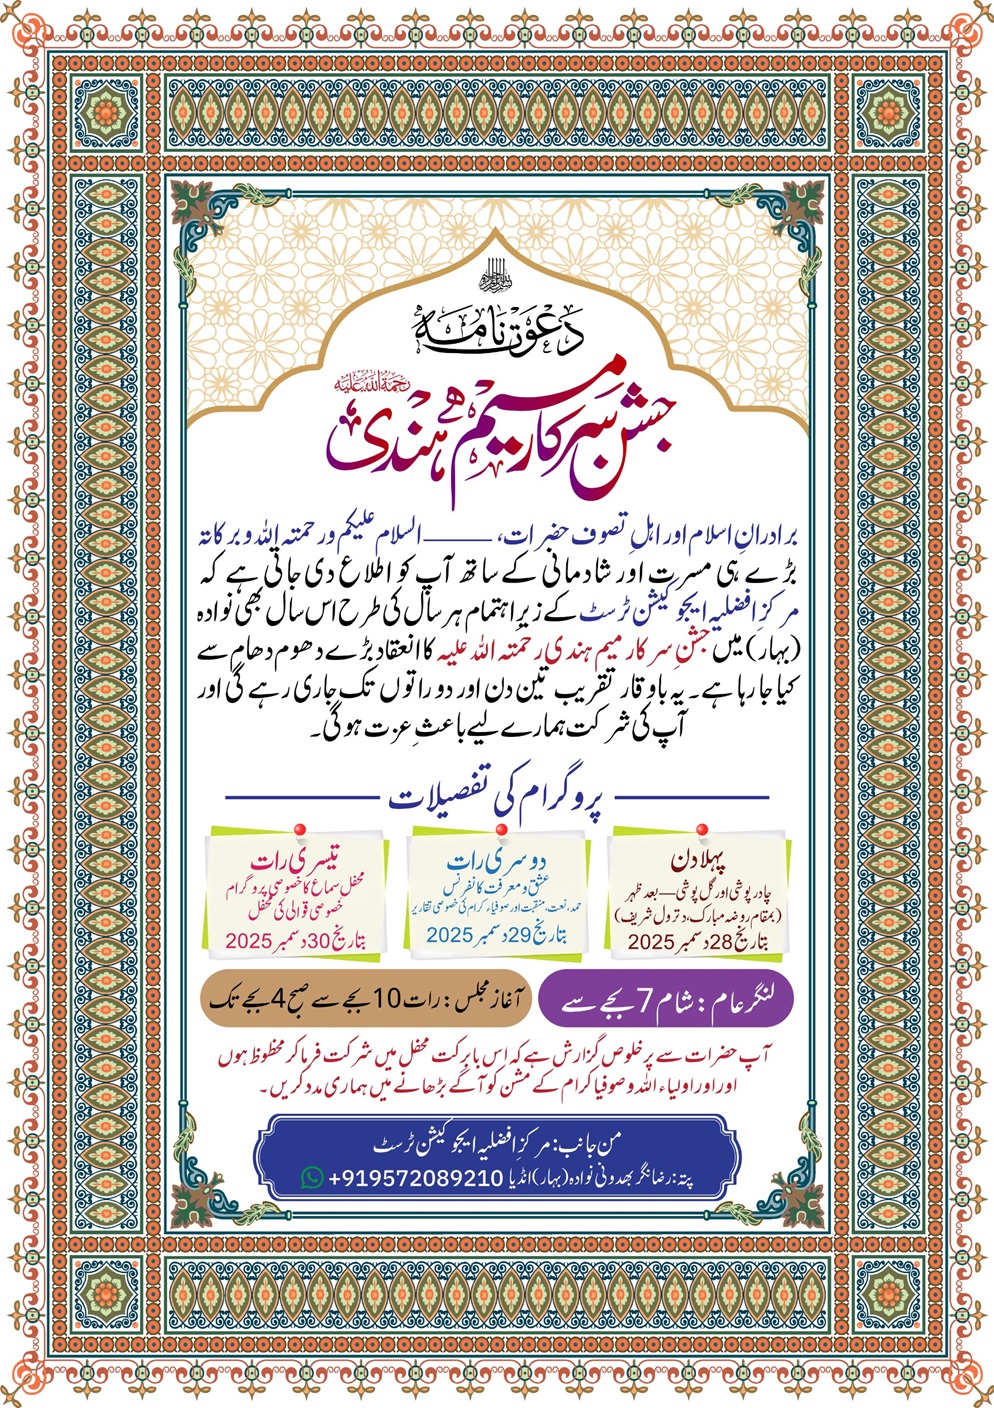 بسم اللہ الرحمن الرحیم
دعوت نامہ
رحمۃ اللہ علیہ
جشن سرکار میم ہندی
برادرانِ اسلام اور اہلِ تصوف حضرات، ——— السلام علیکم ورحمتہ اللہ وبرکاتہ
بڑے ہی مسرت اور شادمانی کے ساتھ آپ کو اطلاع دی جاتی ہے کہ
مرکزِ افضلیہ ایجوکیشن ٹرسٹ کے زیرِ اہتمام ہر سال کی طرح اس سال بھی نوادہ
(بہار) میں جشنِ سرکار میم ہندی رحمتہ اللہ علیہ کا انعقاد بڑے دھوم دھام سے
کیا جا رہا ہے۔ یہ باوقار تقریب تین دن اور دو راتوں تک جاری رہے گی اور
آپ کی شرکت ہمارے لیے باعثِ عزت ہوگی۔
پروگرام کی تفصیلات
پہلا دن
چادر پوشی اور گل پوشی — بعد ظہر
(بمقام روضہ مبارک، دترول شریف)
بتاریخ 28 دسمبر 2025
دوسری رات
عشق و معرفت کانفرنس
حمد، نعت، منقبت اور صوفیاء کرام کی خصوصی تقاریر
بتاریخ 29 دسمبر 2025
تیسری رات
محفل سماع کا خصوصی پروگرام
خصوصی قوالی کی محفل
بتاریخ 30 دسمبر 2025
لنگر عام : شام 7 بجے سے
آغاز مجلس : رات 10 بجے سے صبح 4 بجے تک
آپ حضرات سے پرخلوص گزارش ہے کہ اس بابرکت محفل میں شرکت فرما کر محظوظ ہوں
اور اور اولیاء اللہ و صوفیا کرام کے مشن کو آگے بڑھانے میں ہماری مدد کریں۔
من جانب: مرکزِ افضلیہ ایجوکیشن ٹرسٹ
پتہ: رضا نگر بھدونی نوادہ (بہار) انڈیا +919572089210